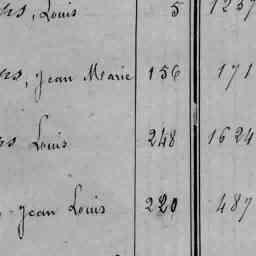 Louis 5
Jean Marie 156 171
Louis 248 1624
Jean Louis 220 487